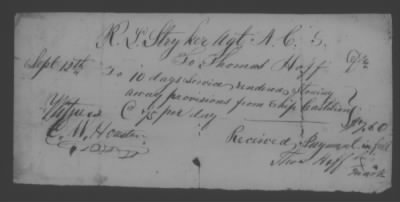 R. L. Stryker Agt. A. C. S.
To Thomas Hoff Dr
Sept 13th To 10 days Service rendered Storing
away provisions from Ship
@ 75 per day $7.50
Witness
C. W.
Received Payment in full
Thos Hoff
his
mark